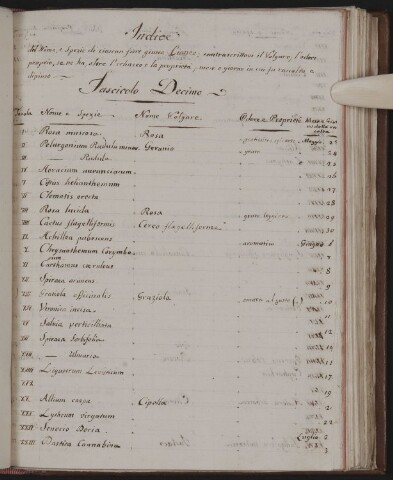 Indice
del Nome, e Spezie di ciascun fiore giusta Linneo; contrascrittovi il Volgare, l'odore
proprio, se ne ha, oltre l' e la proprietà, mese e giorno in cui fu raccolto, e
dipinto
Fascicolo Decimo
Tavola Nome e Spezie Nome Volgare Odore, e Proprietà Mese e Gior
no della rac
colta
I Rosa muscosa Rosa Maggio 23
II Pelargonium Radula minus Geranio grave 24
III — Radula 25
IV Hieracium aurantiacum 26
V Cistus helianthemum 27
VI Clematis erecta 28
VII Rosa lucida Rosa grave leggiero 29
VIII Cactus flagelliformis Cereo flagelliforme 30
IX Achillea aromatico Giugno 1
X Chrysanthemum Corymbo 7
sum
XI Carthamus cæruleus 8
XII Spiræa aruncus 9
XIII Gratiola officinalis Graziola 10
XIV Veronica incisa 11
XV Salvia verticillata 12
XVI Spiræa sorbifolia 14
XVII — Ulmaria 15
XVIII Ligustrum 17
XIX 19
XX Allium cæpa Cipolla 21
XXI Lythrum virgatum 22
XXII Senecio Doria Luglio 2
XXIII Datisca Cannabina 3